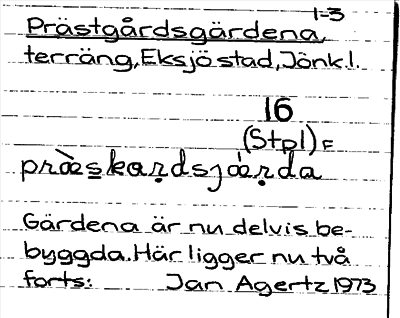 1-3
Prästgårdsgärdena,
terräng, Eksjö stad, Jönk.l.
16
(Stpl) =
præ̀skaṛdsjǽṛda
Gärdena är nu delvis be-
byggda. Här ligger nu två
forts: Jan Agertz 1973